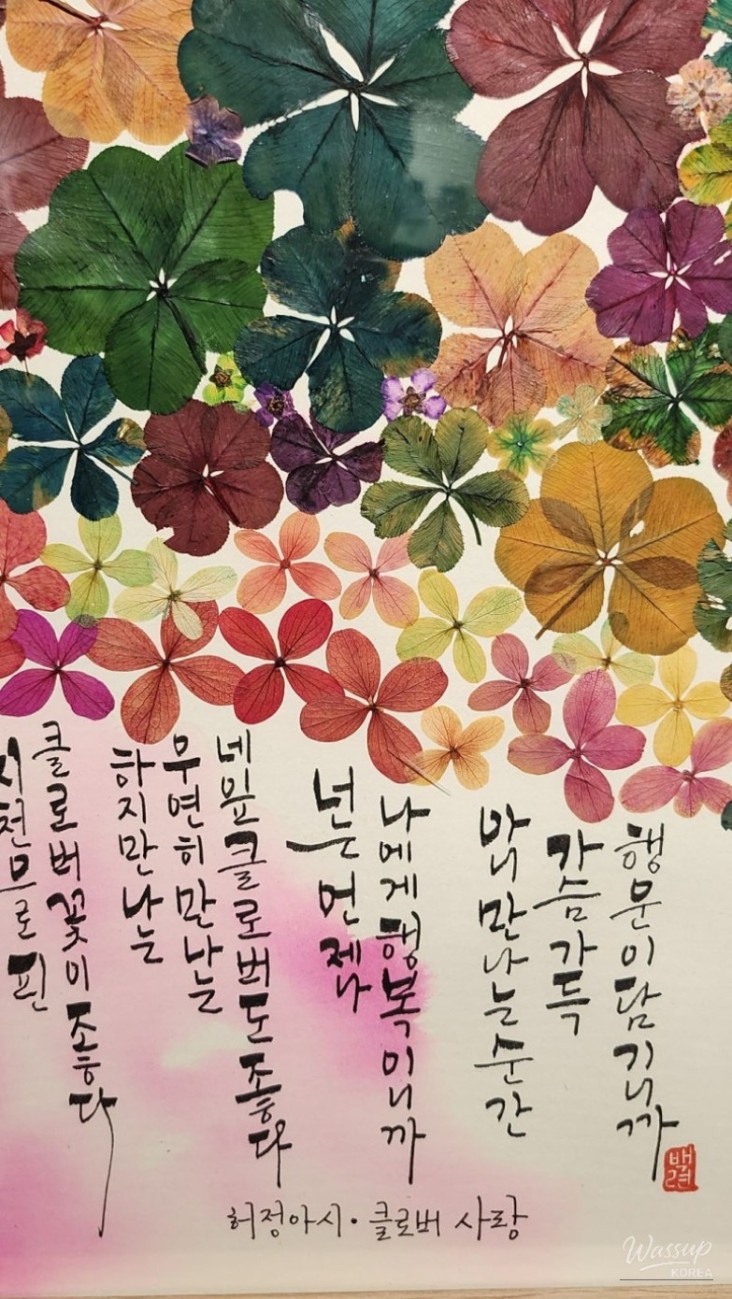 지천으로 핀
클로버꽃이 좋다
하지만 나는
우연히 만나는
네잎 클로버도 좋다
너는 언제나
나에게 행복이니까
만나는 순간
가슴 가득
행운이 담기니까
백련
허정아시·클로버 사랑
Wassup
KOREA